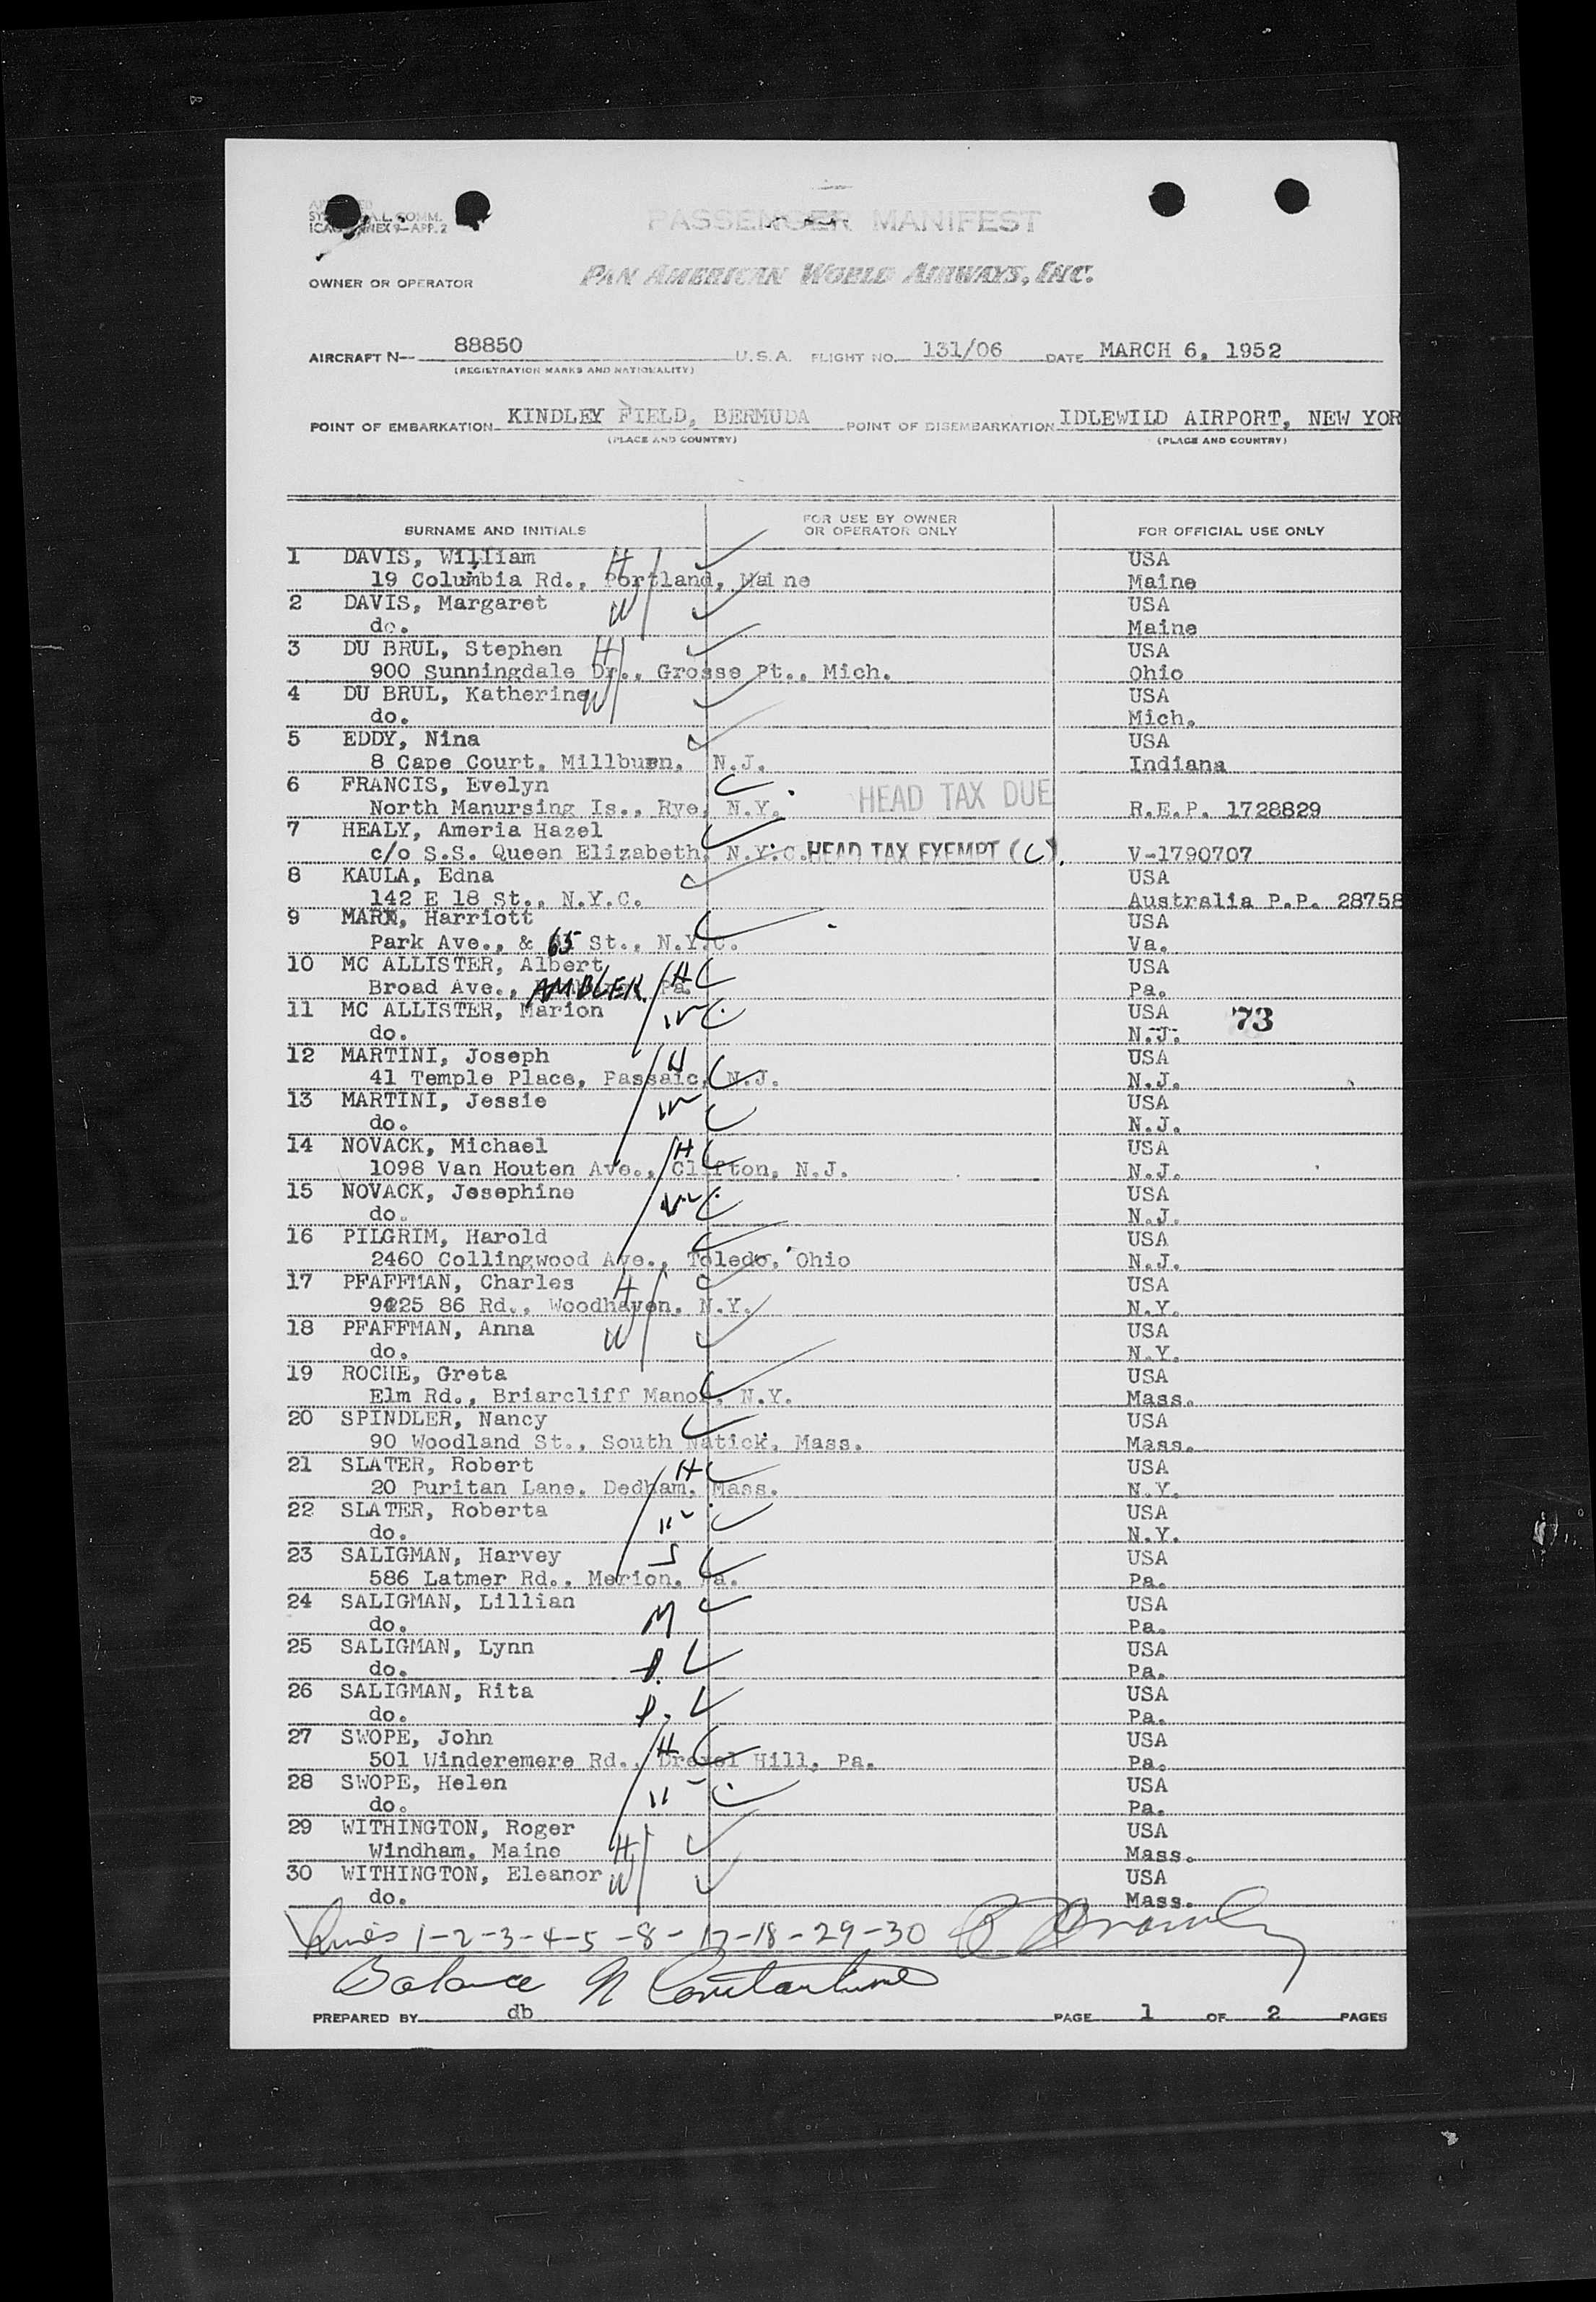 SY A.L. COMM.
ICAO ANNEX 9-APP. 2
PASSENGER MANIFEST
OWNER OR OPERATOR PAN AMERICAN WORLD AIRWAYS, INC.
AIRCRAFT N— 88850 U.S.A. FLIGHT NO. 131/06 DATE MARCH 6, 1952
(REGISTRATION MARKS AND NATIONALITY)
POINT OF EMBARKATION KINDLEY FIELD, BERMUDA POINT OF DISEMBARKATION IDLEWILD AIRPORT, NEW YOR
(PLACE AND COUNTRY) (PLACE AND COUNTRY)
SURNAME AND INITIALS FOR USE BY OWNER OR OPERATOR ONLY FOR OFFICIAL USE ONLY
1 DAVIS, William H USA
19 Columbia Rd., Portland, Maine Maine
2 DAVIS, Margaret W USA
do. Maine
3 DU BRUL, Stephen H USA
900 Sunningdale Dr., Grosse Pt., Mich. Ohio
4 DU BRUL, Katherine W USA
do. Mich.
5 EDDY, Nina USA
8 Cape Court, Millburn, N.J. Indiana
6 FRANCIS, Evelyn HEAD TAX DUE
North Manursing Is., Rye, N.Y. R.E.P. 1728829
7 HEALY, Ameria Hazel
c/o S.S. Queen Elizabeth, N.Y.C. HEAD TAX EXEMPT (C). V-1790707
8 KAULA, Edna USA
142 E 18 St., N.Y.C. Australia P.P. 28758
9 MARX, Harriott USA
Park Ave., & 65 St., N.Y.C. Va.
10 MC ALLISTER, Albert H USA
Broad Ave., AMBLER Pa. Pa.
11 MC ALLISTER, Marion W USA 73
do. N.J.
12 MARTINI, Joseph H USA
41 Temple Place, Passaic, N.J. N.J.
13 MARTINI, Jessie W USA
do. N.J.
14 NOVACK, Michael H USA
1098 Van Houten Ave., Clifton, N.J. N.J.
15 NOVACK, Josephine W USA
do. N.J.
16 PILGRIM, Harold USA
2460 Collingwood Ave., Toledo, Ohio N.J.
17 PFAFFMAN, Charles H USA
9425 86 Rd., Woodhaven, N.Y. N.Y.
18 PFAFFMAN, Anna W USA
do. N.Y.
19 ROCHE, Greta USA
Elm Rd., Briarcliff Manor, N.Y. Mass.
20 SPINDLER, Nancy USA
90 Woodland St., South Natick, Mass. Mass.
21 SLATER, Robert H USA
20 Puritan Lane, Dedham, Mass. N.Y.
22 SLATER, Roberta W USA
do. N.Y.
23 SALIGMAN, Harvey S USA
586 Latmer Rd., Merion, Pa. Pa.
24 SALIGMAN, Lillian M USA
do. Pa.
25 SALIGMAN, Lynn USA
do. Pa.
26 SALIGMAN, Rita USA
do. Pa.
27 SWOPE, John H USA
501 Winderemere Rd., Drexel Hill, Pa. Pa.
28 SWOPE, Helen W USA
do. Pa.
29 WITHINGTON, Roger USA
Windham, Maine H Mass.
30 WITHINGTON, Eleanor W USA
do. Mass.
Lines 1-2-3-4-5-8-17-18-29-30
Balance N Constantine
PREPARED BY db PAGE 1 OF 2 PAGES